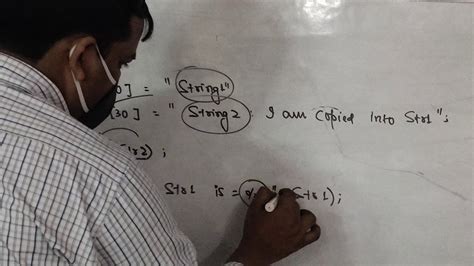 0] = "String1"
[30] = "String2 I am Copied into Str1";
tr2);
Str1 is = % " Str1);